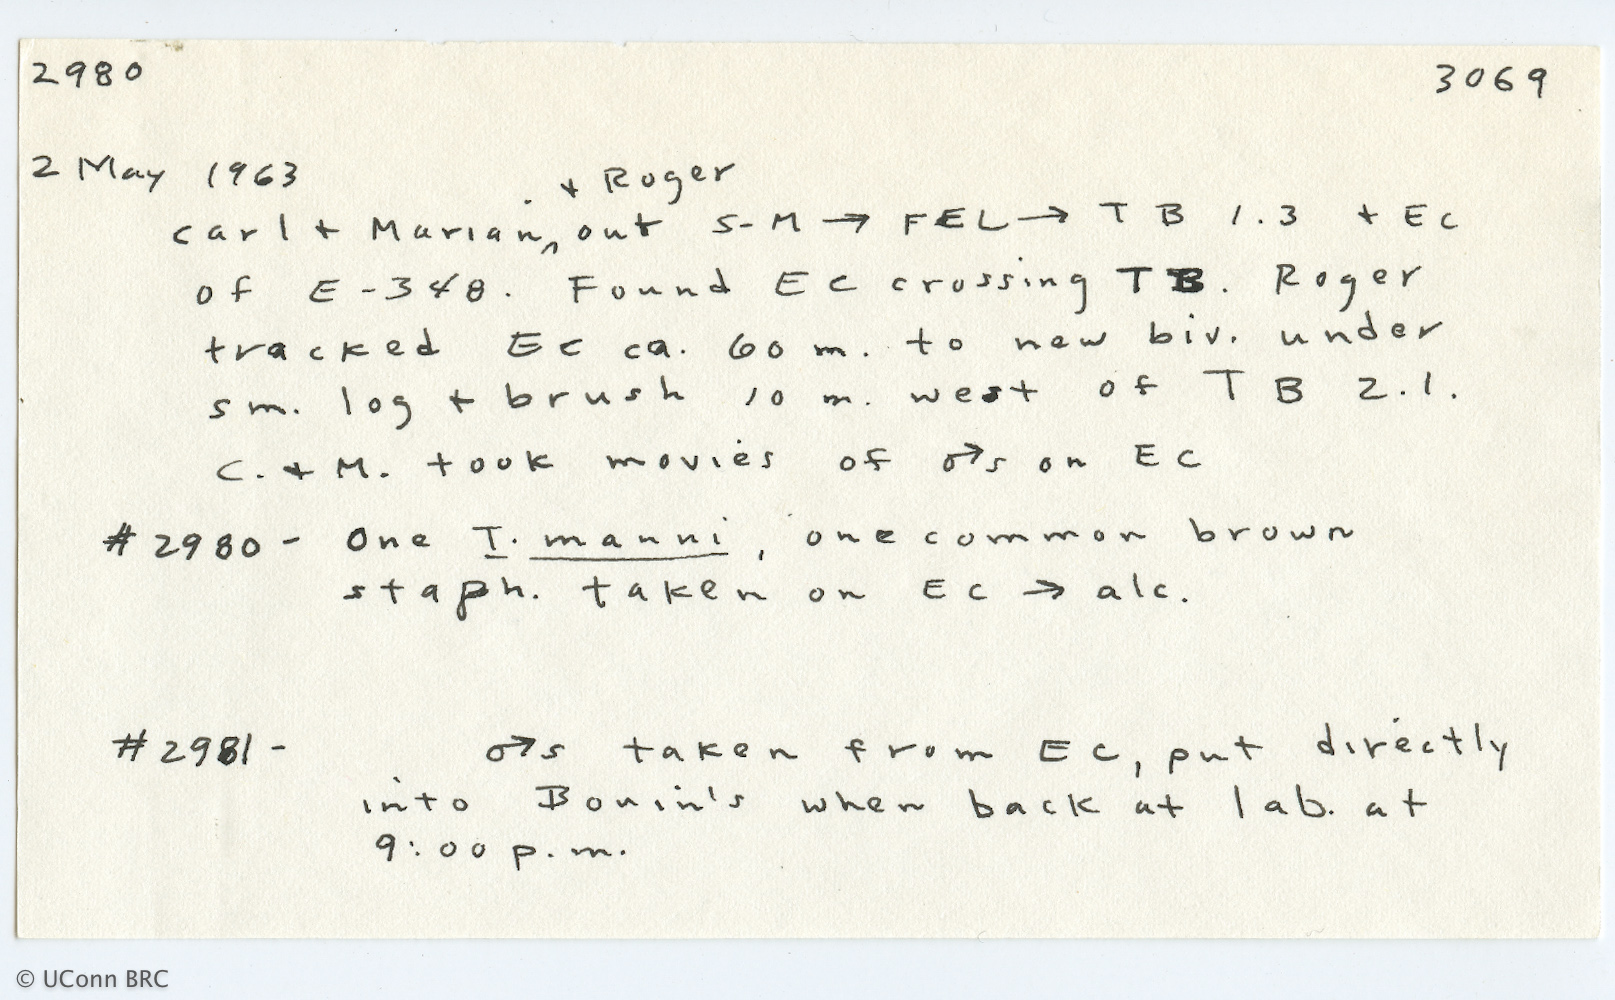 2980 3069
2 May 1963
+ Roger
Carl + Marian, out S-M → FEL → TB 1.3 + Ec
of E-348. Found Ec crossing TB. Roger
tracked Ec ca. 60 m. to new biv. under
sm. log + brush 10 m. west of TB 2.1.
C. + M. took movies of ♂s on Ec
#2980 - One T. manni, one common brown
staph. taken on Ec → alc.
#2981 - ♂s taken from Ec, put directly
into Bouin's when back at lab. at
9:00 p.m.
© UConn BRC